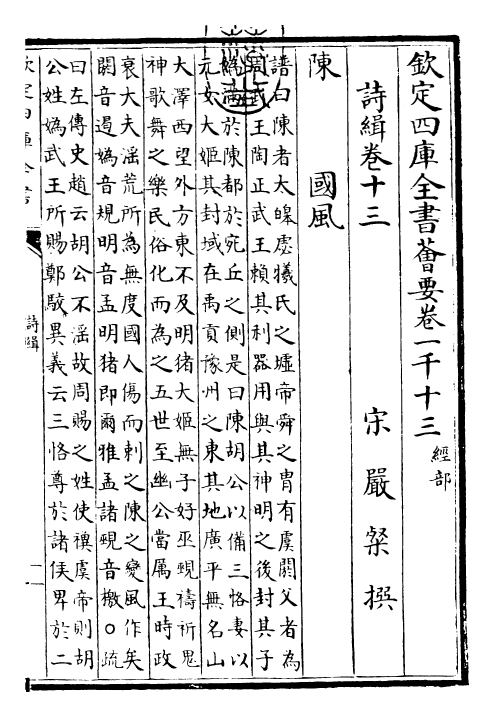 欽定四庫全書薈要卷一千十三 經部
詩緝卷十三
宋 嚴粲 撰
陳 國風
譜曰陳者大皥虙犧氏之墟帝舜之胄有虞閼父者為
周武王陶正武王賴其利器用與其神明之後封其子
媯滿於陳都於宛丘之側是曰陳胡公以備三恪妻以
元女大姬其封域在禹貢豫州之東其地廣平無名山
大澤西望外方東不及明猪大姬無子好巫覡禱祈鬼
神歌舞之樂民俗化而為之五世至幽公當厲王時政
衰大夫淫荒所為無度國人傷而刺之陳之變風作矣
閼音遏媯音規明音孟明猪即爾雅孟諸覡音檄○疏
曰左傳史趙云胡公不淫故周賜之姓使禩虞帝則胡
公姓媯武王所賜鄭駮異義云三恪尊於諸侯卑於二
欽定四庫全書
詩緝
一